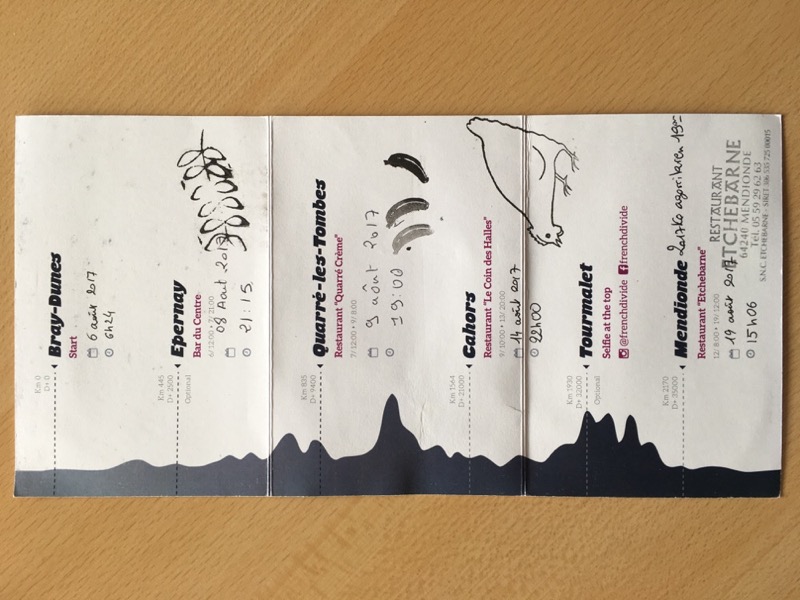 Km 0
D+ 0
Bray-Dunes
Start
6 août 2017
6h24
Km 445
D+ 2500
Optional
Epernay
Bar du Centre
6/ 12:00 • 7/ 21:00
08 Aout 2017
21:15
Km 835
D+ 9400
Quarré-les-Tombes
Restaurant "Quarré Crème"
7/ 12:00 • 9/ 8:00
9 août 2017
19:00
Km 1564
D+ 21000
Cahors
Restaurant "Le Coin des Halles"
9/ 10:00 • 13/ 20:00
14 août 2017
22h00
Km 1930
D+ 32000
Optional
Tourmalet
Selfie at the top
@frenchdivide frenchdivide
Km 2170
D+ 35000
Mendionde 2017ko agorrilaren 19an
Restaurant "Etchebarne"
12/ 8:00 • 19/ 12:00
19 août 2017
15h06
RESTAURANT
ETCHEBARNE
64240 MENDIONDE
Tél. 05 59 29 62 63
S.N.C. ETCHEBARNE - SIRET 306 535 725 00015